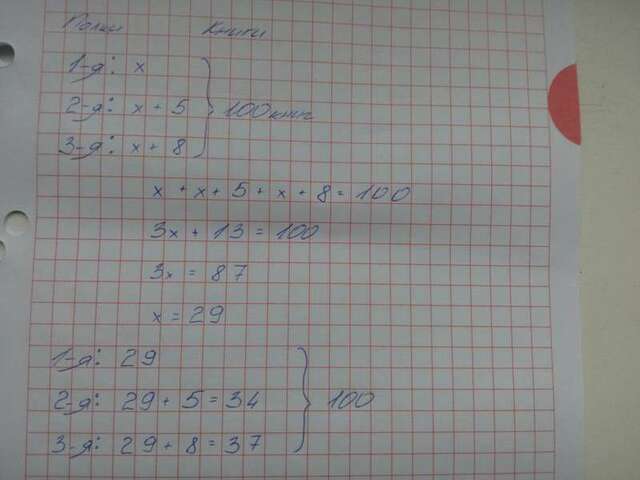 Полки Книги
1-я: x
2-я: x + 5
100 книг
3-я: x + 8
x + x + 5 + x + 8 = 100
3x + 13 = 100
3x = 87
x = 29
1-я: 29
2-я: 29 + 5 = 34
100
3-я: 29 + 8 = 37